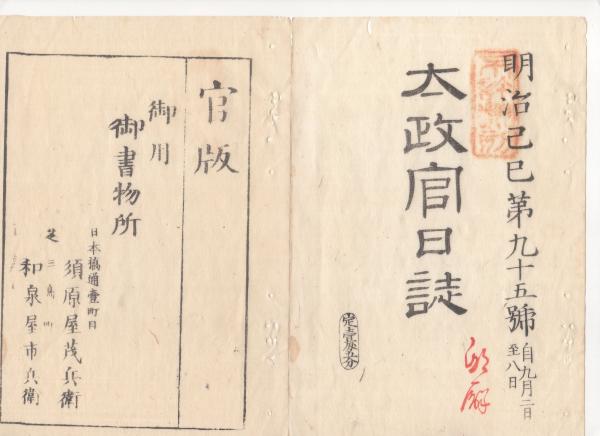 明治己巳第九十五號
自九月二日
至八日
太政官日誌
官版
御用
御書物所
日本橋通壹町目
須原屋茂兵衛
芝三島町
和泉屋市兵衛